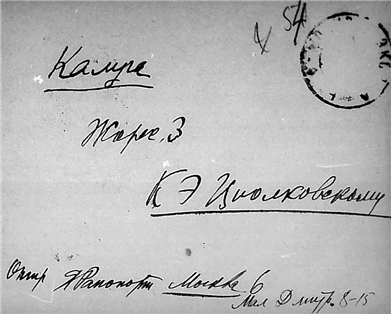 х 54
Калуга
Жорес. 3
К Э Циолковскому
Отпр Я Рапопорт Москва 6
Мал Дмитр. 8-15